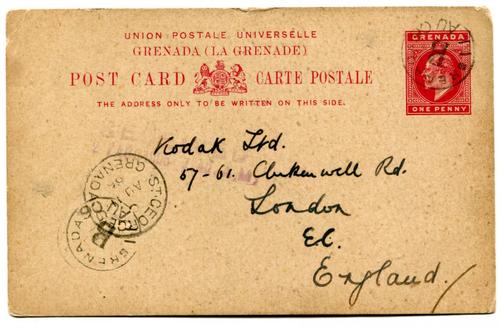 UNION POSTALE UNIVERSELLE
GRENADA (LA GRENADE)
POST CARD CARTE POSTALE
THE ADDRESS ONLY TO BE WRITTEN ON THIS SIDE.
GRENADA
ONE PENNY
Kodak Ltd.
57-61. Clerkenwell Rd.
London
E.C.
England/
ST. GEORGE
GRENADA
AU
GRENADA
B